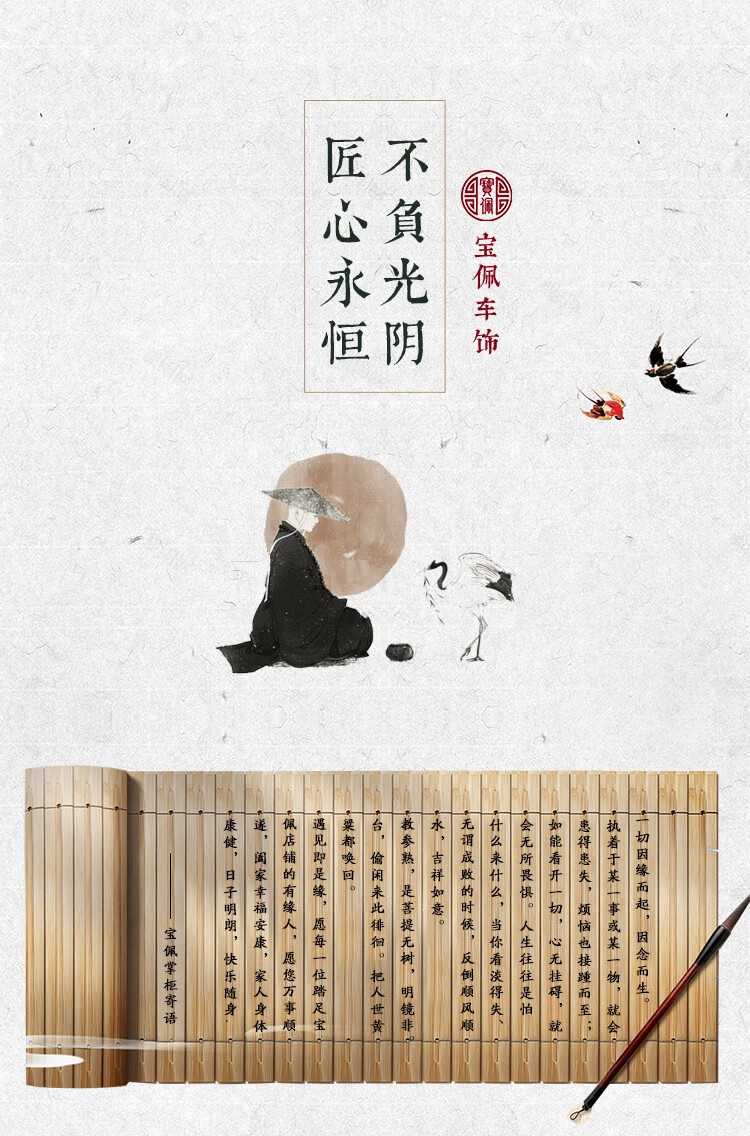 不負光阴
匠心永恒
寶佩
宝佩车饰
一切因缘而起，因念而生。
执着于某一事或某一物，就会
患得患失，烦恼也接踵而至；
如能看开一切，心无挂碍，就
会无所畏惧。人生往往是怕
什么来什么，当你看淡得失、
无谓成败的时候，反倒顺风顺
水，吉祥如意。
教参熟，是菩提无树，明镜非
台，偷闲来此徘徊。把人世黄
粱都唤回。
遇见即是缘，愿每一位踏足宝
佩店铺的有缘人，愿您万事顺
遂，阖家幸福安康，家人身体
康健，日子明朗，快乐随身.
——宝佩掌柜寄语